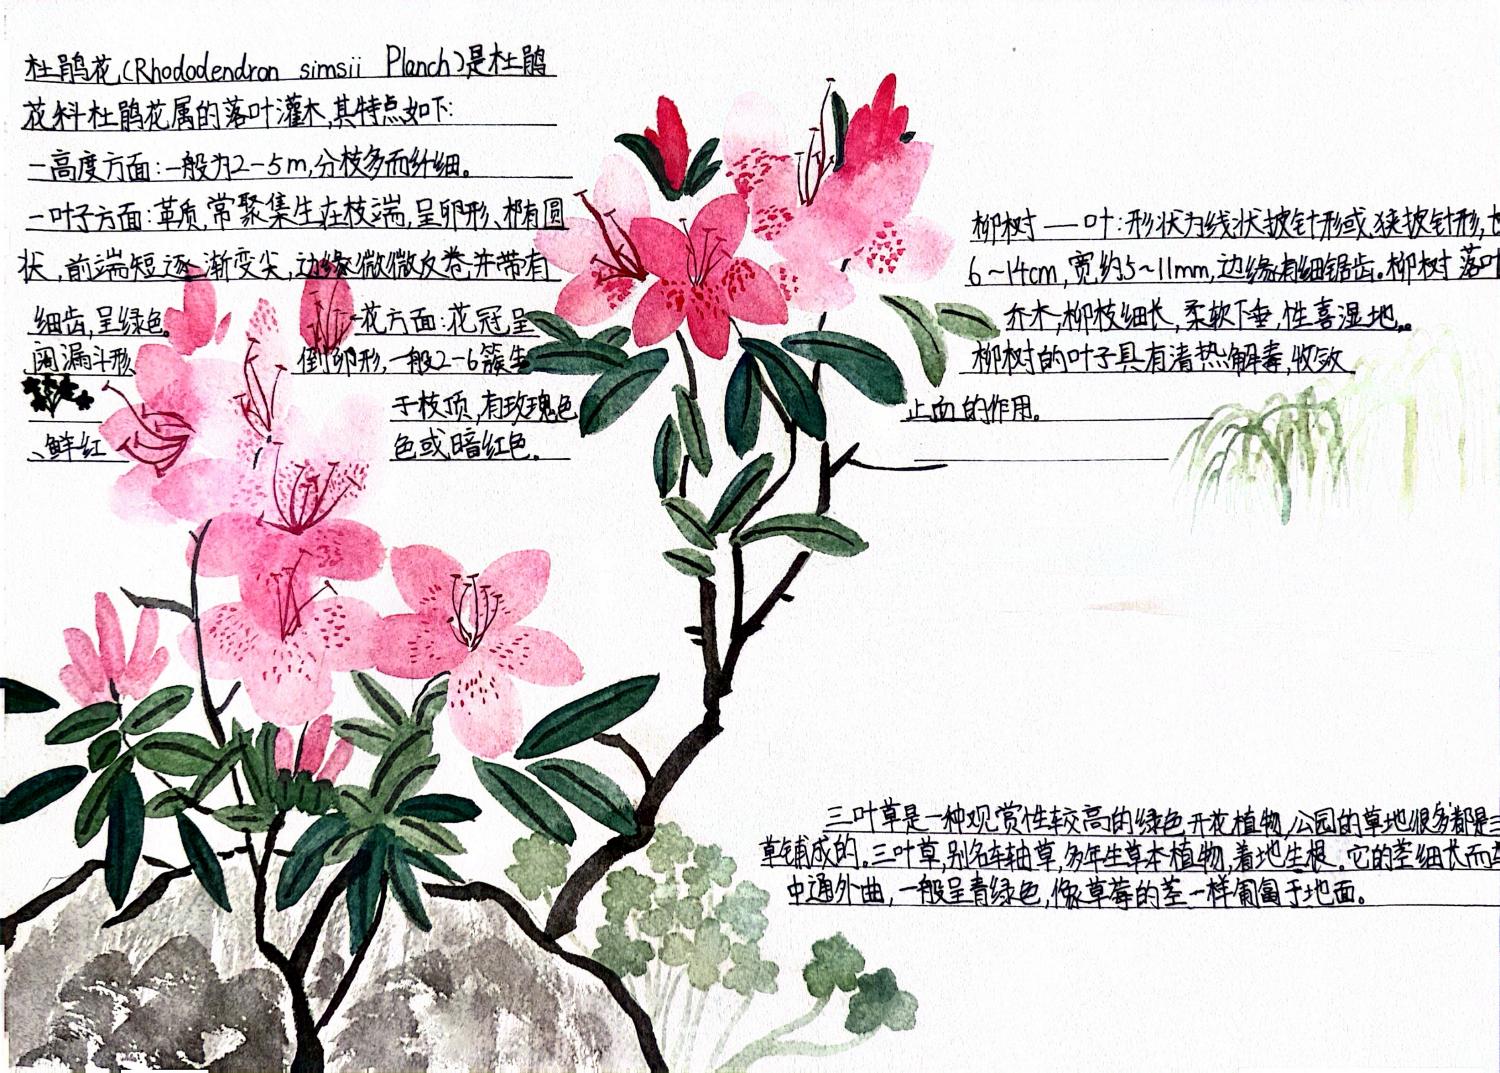 杜鹃花,(Rhododendron simsii Planch)是杜鹃
花科杜鹃花属的落叶灌木,其特点如下:
-高度方面:一般为2-5m,分枝多而纤细。
-叶子方面:革质,常聚集生在枝端,呈卵形、椭圆
状,前端短逐渐变尖,边缘微微反卷并带有
细齿,呈绿色。 -花方面:花冠呈
阔漏斗形 倒卵形,一般2-6簇生
于枝顶,有玫瑰色
、鲜红 色或暗红色。
柳树——叶:形状为线状披针形或狭披针形,
6~14cm,宽约5~11mm,边缘有细锯齿。柳树落叶
乔木,柳枝细长,柔软下垂,性喜湿地。
柳树的叶子具有清热解毒,收敛
止血的作用。
三叶草是一种观赏性较高的绿色开花植物,公园的草地很多都是三
草铺成的。三叶草,别名车轴草,多年生草本植物,着地生根。它的茎细长而
中通外曲,一般呈青绿色,像草莓的茎一样匍匐于地面。